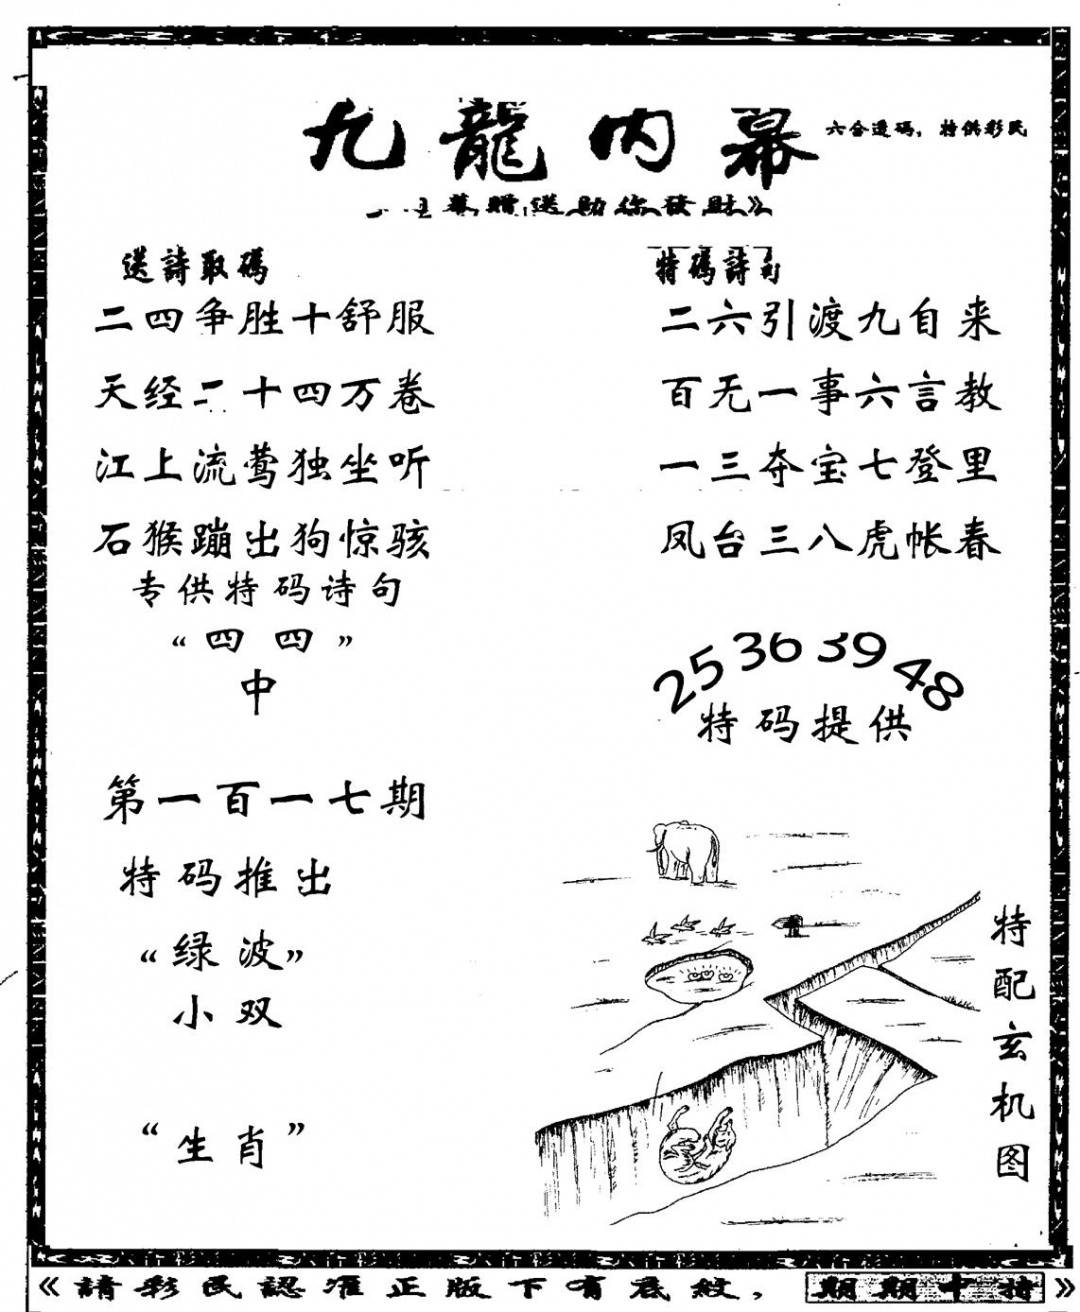 九龍内幕
六合透码，特供彩民
贈送助你發財》
送詩取碼
二四争胜十舒服
天经二十四万卷
江上流莺独坐听
石猴蹦出狗惊骇
专供特码诗句
“四四”
中
第一百一七期
特码推出
“绿波”
小双
“生肖”
特碼詩句
二六引渡九自来
百无一事六言教
一三夺宝七登里
凤台三八虎帐春
25 36 39 48
特码提供
特配玄机图
《請彩民認准正版下有底紋，期期中特》